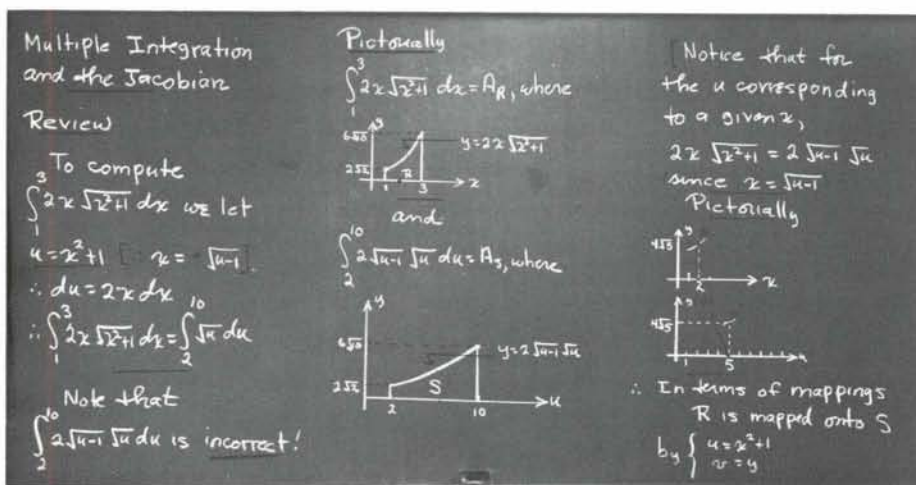 Multiple Integration
and the Jacobian
Review
To compute
∫₁³ 2x√(x²+1) dx we let
u = x²+1 [∴ x = √(u-1)]
∴ du = 2x dx
∴ ∫₁³ 2x√(x²+1) dx = ∫₂¹⁰ √u du
Note that
∫₂¹⁰ 2√(u-1) √u du is incorrect!
Pictorially
∫₁³ 2x√(x²+1) dx = A_R, where
y
6√10
y = 2x√(x²+1)
2√2
R
1 3 x
and
∫₂¹⁰ 2√(u-1) √u du = A_S, where
y
6√10
y = 2√(u-1) √u
2√2
S
2 10 u
Notice that for
the u corresponding
to a given x,
2x√(x²+1) = 2√(u-1) √u
since x = √(u-1)
Pictorially
y
4√5
1 2 x
4√5
1 5 u
∴ In terms of mappings
R is mapped onto S
by { u = x²+1
v = y